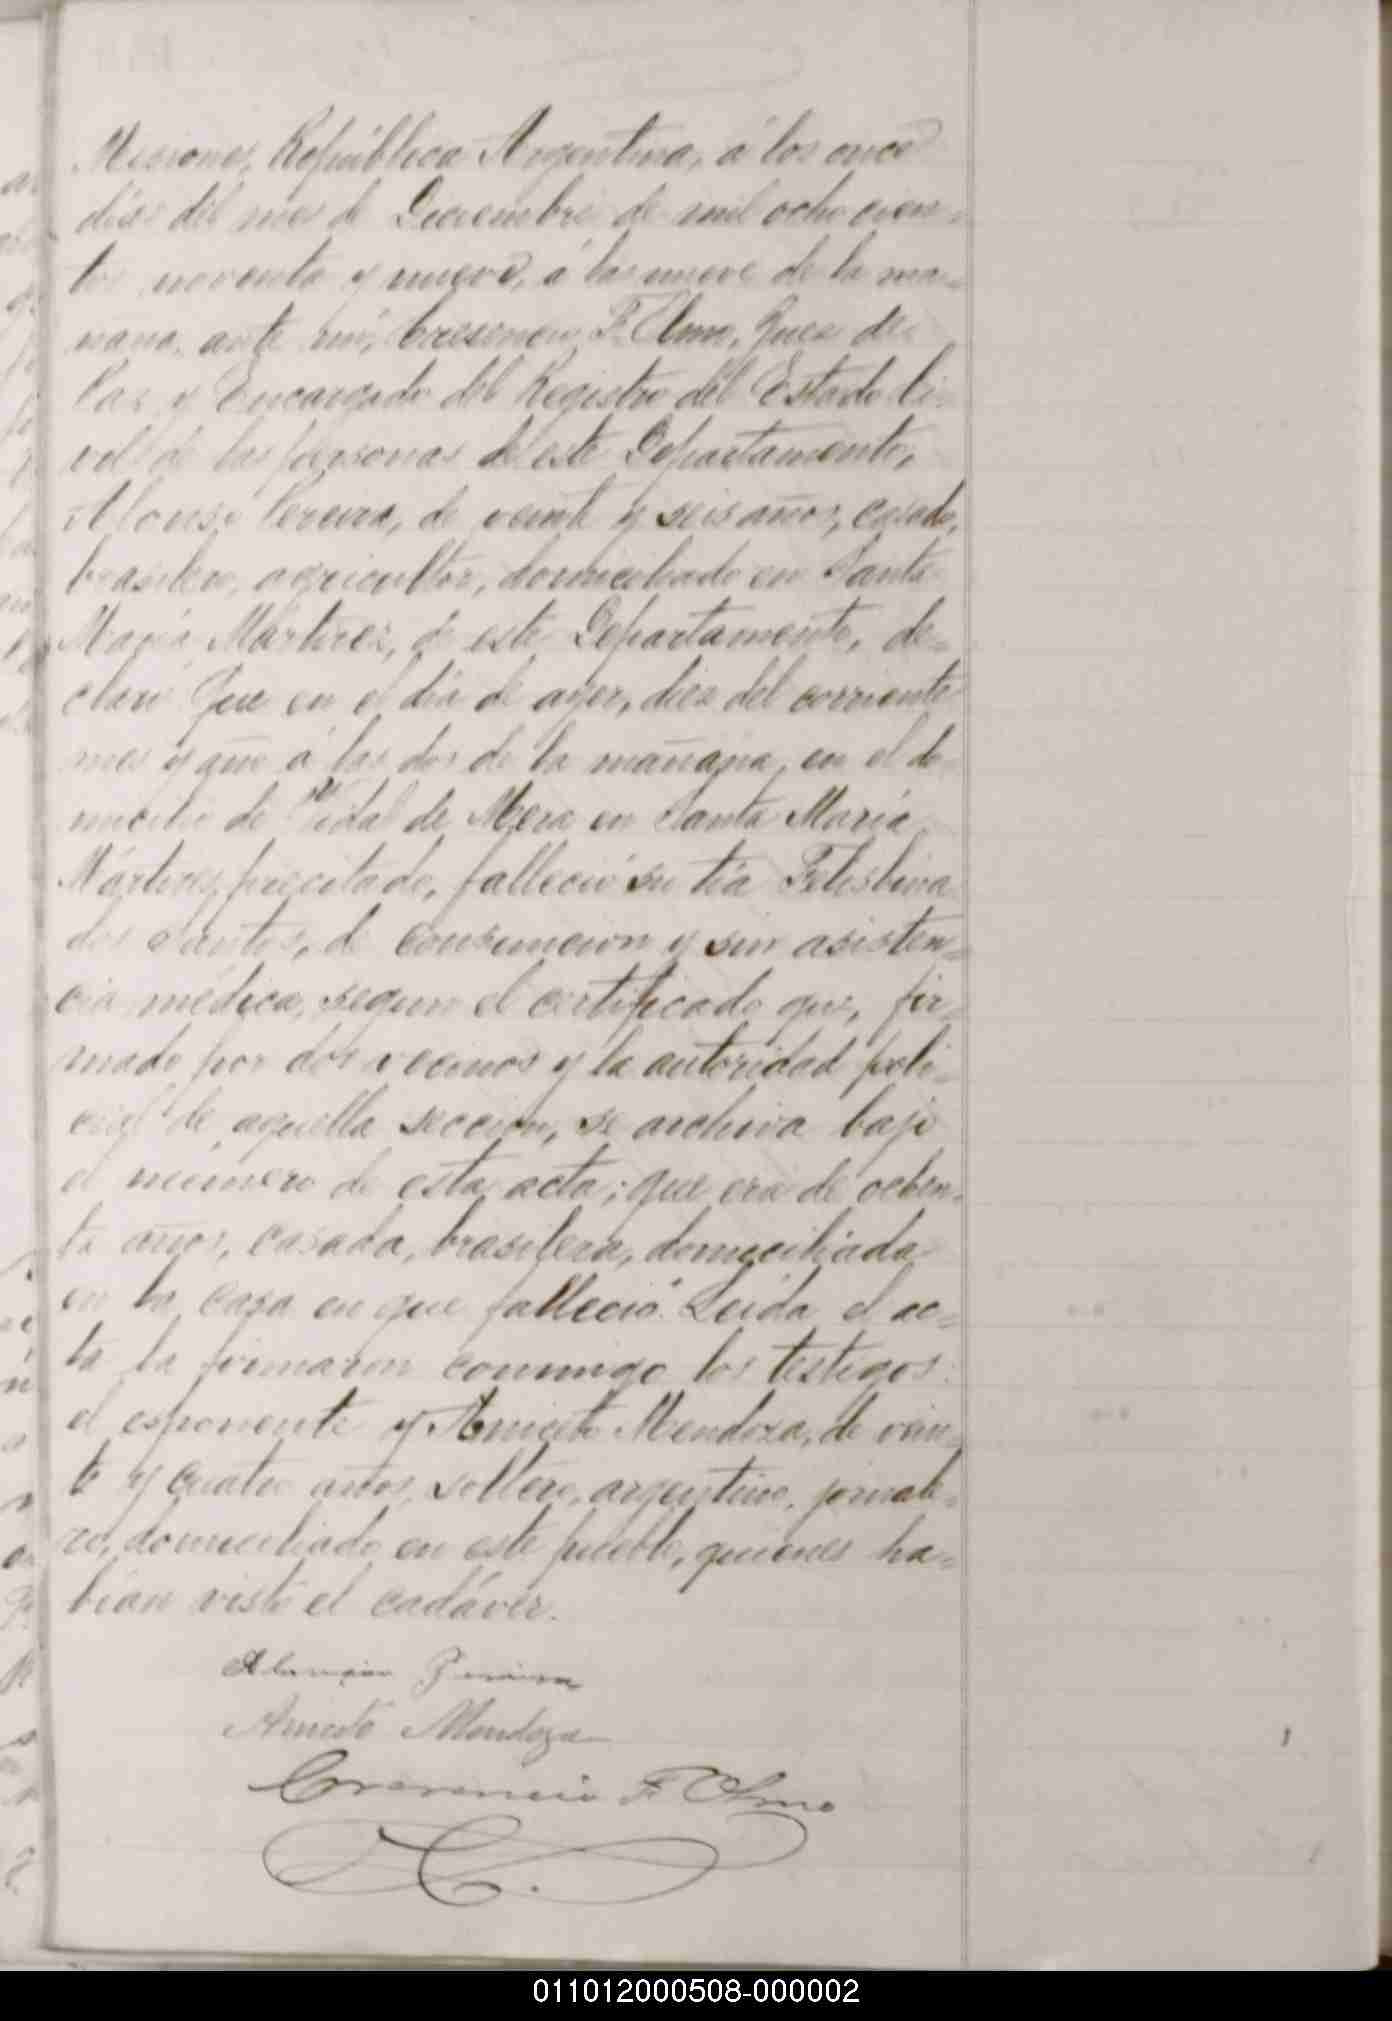 Misiones, República Argentina, á los once
días del mes de Diciembre de mil ocho cien-
tos noventa y nueve, á las nueve de la ma-
ñana, ante mí, Cresencio F. Olmo, Juez de
Paz y Encargado del Registro del Estado Ci-
vil de las personas de este Departamento,
Alonso Pereira, de veinte y seis años, casado,
brasilero, agricultor, domiciliado en Santa
María Mártires, de este Departamento, de-
claró: Que en el día de ayer, diez del corriente
mes y año á las dos de la mañana, en el do-
micilio de Vidal de Mera en Santa María
Mártires precitado, falleció su tía Felisbina
dos Santos, de consuncion y sin asisten-
cia médica, segun el certificado que, fir-
mado por dos vecinos y la autoridad poli-
cial de aquella seccion, se archiva bajo
el número de esta acta; que era de ochen-
ta años, casada, brasilera, domiciliada
en la casa en que falleció. Leída el ac-
ta la firmaron conmigo los testigos:
el esponente y Aniceto Mendoza, de vein-
te y cuatro años, soltero, argentino, jornale-
ro, domiciliado en este pueblo, quienes ha-
bían visto el cadáver.
Pereira
Aniceto Mendoza
Cresencio F. Olmo
011012000508-000002